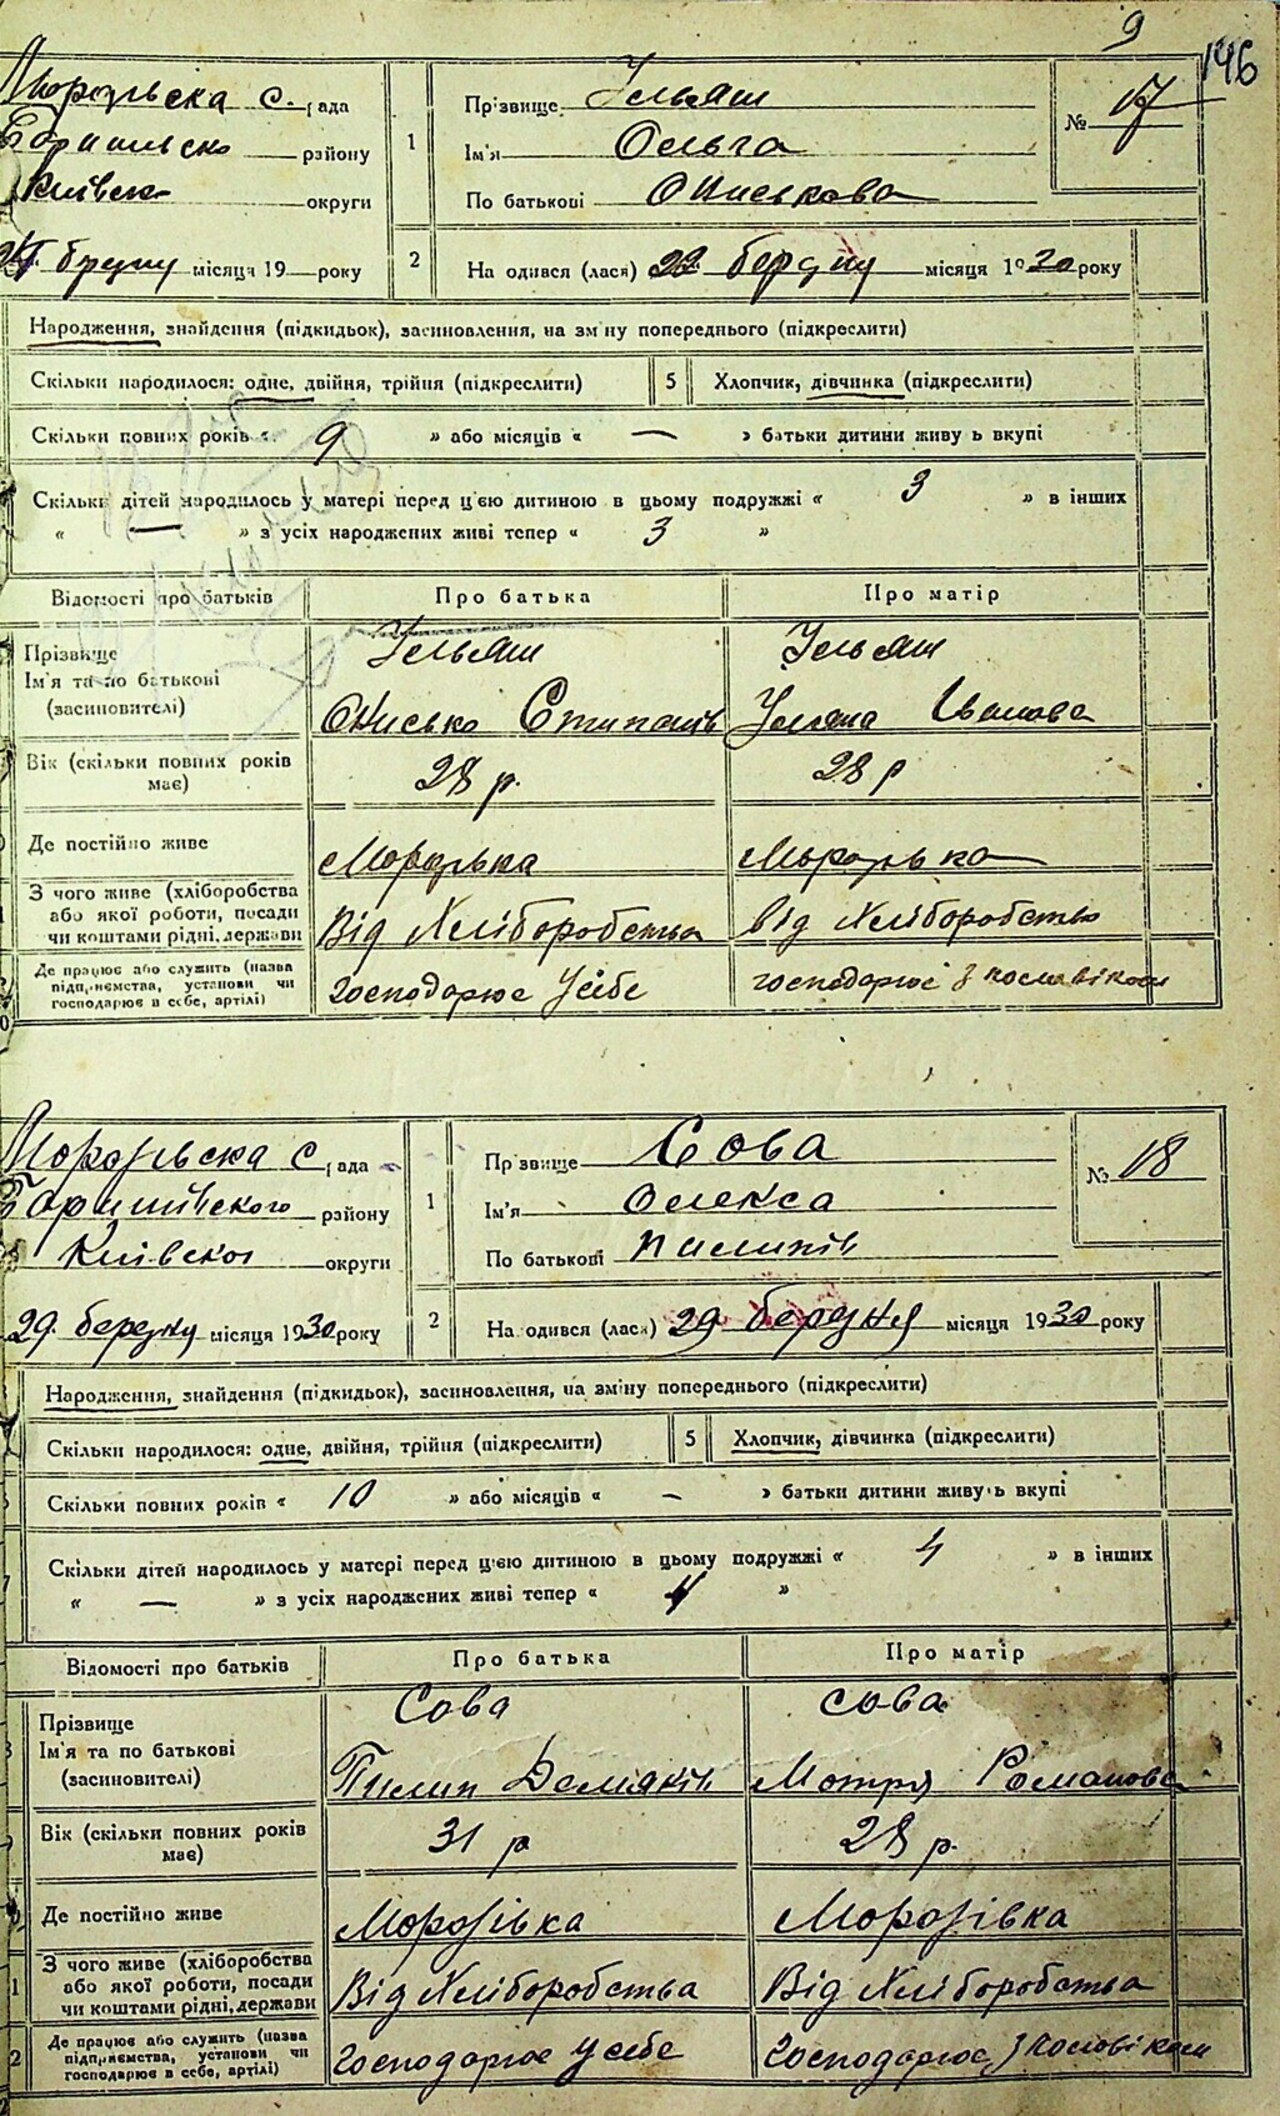 9
146
Морозівска с. рада
Баришевско району
Київско округи
24. березну місяця 19 року
1
Прізвище Ільяш
Ім'я Ольга
По батьковіОниськова
№ 17
2
На одився (лася) 22. березну місяця 1930 року
Народження, знайдення (підкидьок), засиновлення, на зміну попереднього (підкреслити)
Скільки народилося: одне, двійня, трійня (підкреслити) 5 Хлопчик, дівчинка (підкреслити)
Скільки повних років « 9 » або місяців « — » батьки дитини живу ь вкупі
Скільки дітей народилось у матері перед цією дитиною в цьому подружжі « 3 » в інших
« — » з усіх народжених живі тепер « 3 »
Відомості про батьків Про батька Про матір
Прізвище
Ім'я та по батькові
(засиновителі)
Ільяш
Онисько Стипанів
Ільяш
Уляна Іванова
Вік (скільки повних років
має)
28 р.
28 р
Де постійно живе Морозівка Морозівка
З чого живе (хліборобства
або якої роботи, посади
чи коштами рідні, держави
Від Хліборобства
Від Хліборобства
Де працює або служить (назва
підприємства, установи чи
господарює в себе, артілі)
Господарює Усебе
господарює з чоловіком
Морозівска с рада
Баришівского району
Київскої округи
29. березну місяця 1930 року
1
Пр звище Сова
Ім'я Олекса
По батькові Пилипів
№ 18
2
На одився (лася) 29 березня місяця 1930 року
Народження, знайдення (підкидьок), засиновлення, на зміну попереднього (підкреслити)
Скільки народилося: одне, двійня, трійня (підкреслити) 5 Хлопчик, дівчинка (підкреслити)
Скільки повних років « 10 » або місяців « — » батьки дитини живу ь вкупі
Скільки дітей народилось у матері перед цією дитиною в цьому подружжі « 4 » в інших
« — » з усіх народжених живі тепер « 4 »
Відомості про батьків Про батька Про матір
Прізвище
Ім'я та по батькові
(засиновителі)
Сова
Пилип Демяків
Сова
Мотря Романова
Вік (скільки повних років
має)
31 р
28 р.
Де постійно живе Морозівка Морозівка
З чого живе (хліборобства
або якої роботи, посади
чи коштами рідні, держави
Від Хліборобства
Від Хліборобства
Де працює або служить (назва
підприємства, установи чи
господарює в себе, артілі)
Господарює усебе
Господарює з чоловіком